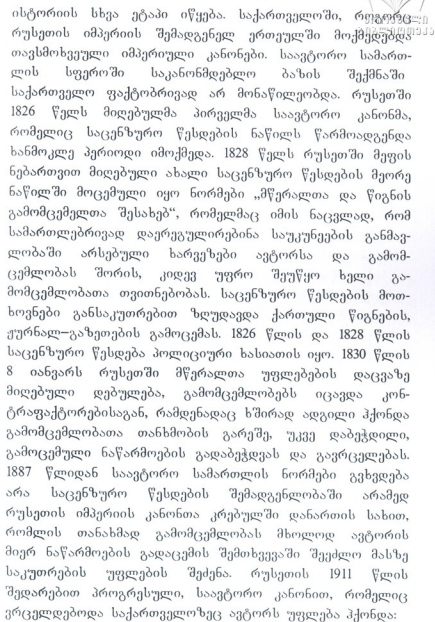 ისტორიის სხვა ეტაპი იწყება. საქართველოში, როგორც
რუსეთის იმპერიის შემადგენელ ერთეულში მოქმედებდა
თავსმოხვეული იმპერიული კანონები. საავტორო სამართ-
ლის სფეროში საკანონმდებლო ბაზის შექმნაში
საქართველო ფაქტობრივად არ მონაწილეობდა. რუსეთში
1826 წელს მიღებულმა პირველმა საავტორო კანონმა,
რომელიც საცენზურო წესდების ნაწილს წარმოადგენდა
ხანმოკლე პერიოდი იმოქმედა. 1828 წელს რუსეთში მეფის
ნებართვით მიღებული ახალი საცენზურო წესდების მეორე
ნაწილში მოცემული იყო ნორმები „მწერალთა და წიგნის
გამომცემელთა შესახებ“, რომელმაც იმის ნაცვლად, რომ
სამართლებრივად დაერეგულირებინა საუკუნეების განმავ-
ლობაში არსებული ხარვეზები ავტორსა და გამომ-
ცემლობას შორის, კიდევ უფრო შეუწყო ხელი გა-
მომცემლობათა თვითნებობას. საცენზურო წესდების მოთ-
ხოვნები განსაკუთრებით ზღუდავდა ქართული წიგნების,
ჟურნალ–გაზეთების გამოცემას. 1826 წლის და 1828 წლის
საცენზურო წესდება პოლიციური ხასიათის იყო. 1830 წლის
8 იანვარს რუსეთში მწერალთა უფლებების დაცვაზე
მიღებული დებულება, გამომცემლობებს იცავდა კონ-
ტრაფაქტორებისაგან, რამდენადაც ხშირად ადგილი ჰქონდა
გამომცემლობათა თანხმობის გარეშე, უკვე დაბეჭდილი,
გამოცემული ნაწარმოების გადაბეჭდვას და გავრცელებას.
1887 წლიდან საავტორო სამართლის ნორმები გვხვდება
არა საცენზურო წესდების შემადგენლობაში არამედ
რუსეთის იმპერიის კანონთა კრებულში დანართის სახით,
რომლის თანახმად გამომცემლობას მხოლოდ ავტორის
მიერ ნაწარმოების გადაცემის შემთხვევაში შეეძლო მასზე
საკუთრების უფლების შეძენა. რუსეთის 1911 წლის
შედარებით პროგრესული, საავტორო კანონით, რომელიც
ვრცელდებოდა საქართველოზეც ავტორს უფლება ჰქონდა: